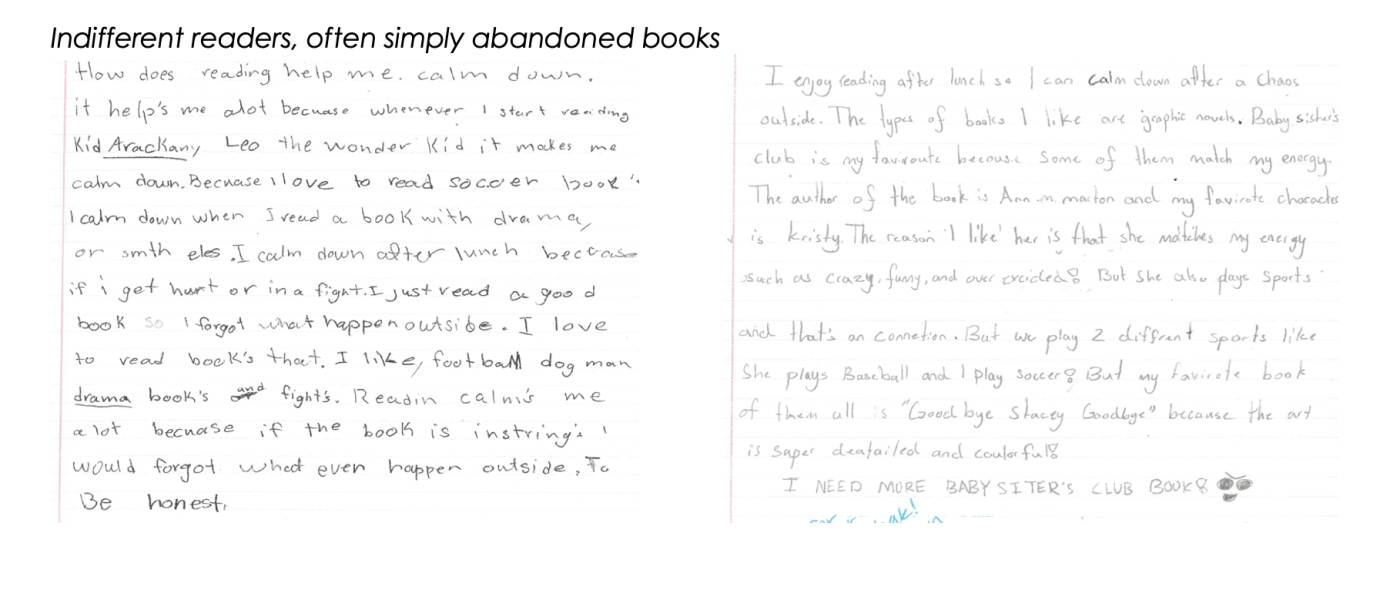 Indifferent readers, often simply abandoned books
How does reading help me. calm down.
it help's me alot becuase whenever I start reading
Kid Arackany Leo the wonder Kid it makes me
calm down. Becuase I love to read soccer book's.
I calm down when I read a book with drama,
or smth eles. I calm down after lunch because
if i get hurt or in a fight. I just read a good
book so I forgot what happen outside. I love
to read book's that. I like, football dog man
drama book's and fight's. Readin calm's me
a lot becuase if the book is instring's I
would forgot what even happen outside, To
Be honest.
I enjoy reading after lunch so I can calm down after a chaos
outside. The types of books I like are graphic novels. Baby sister's
club is my faviroute becouse some of them match my energy.
The author of the book is Ann m. marton and my favirote character
is kristy. The reason I like' her is that she matches my energy
such as crazy, funny, and over excicted! But she also plays sports
and that's an connetion. But we play 2 diffrent sports like
She plays Baseball and I play soccer! But my favirote book
of them all is "Good bye Stacey Goodbye" because the art
is super deatailed and coulorful!
I NEED MORE BABY SITER'S CLUB BOOK!